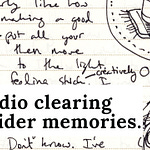 like how
making a good
put all your
then move
to the light,
feeling stuck. I
creatively
dio clearing
ider memories.
Don't know. I've